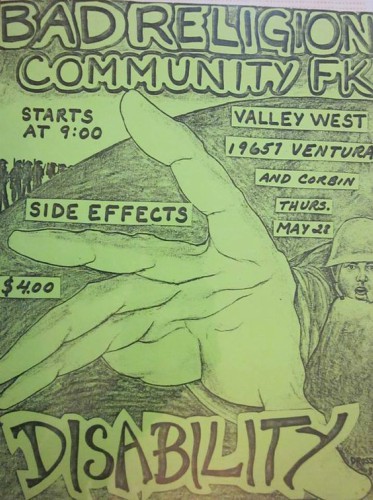 BAD RELIGION
COMMUNITY FK
STARTS
AT 9:00
VALLEY WEST
19657 VENTURA
AND CORBIN
THURS.
MAY 28
SIDE EFFECTS
$4.00
DISABILITY